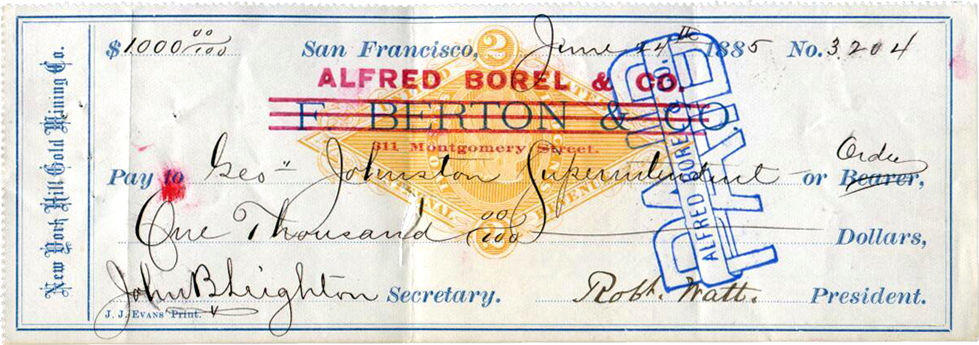 New York Hill Gold Mining Co.
$1000 00/100 San Francisco, June 24th 1885 No. 3204
ALFRED BOREL & CO.
F. BERTON & CO
311 Montgomery Street.
Pay to Geo Johnston Superintendent or Bearer, Order
One Thousand 00/100 Dollars,
John B Leighton Secretary. Robt. Watt. President.
J. J. Evans Print.
2
2
PAID
ALFRED BOREL & CO.
PAID